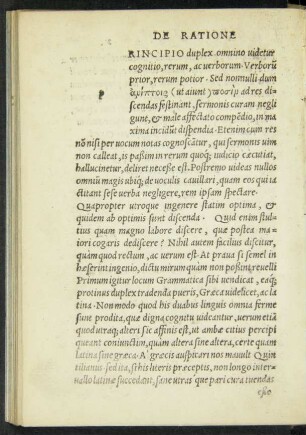 DE RATIONE
PRINCIPIO duplex omnino uidetur
cognitio, rerum, ac uerborum. Verborũ
prior, rerum potior. Sed nonnulli dum
(ut aiunt) ad res di
scendas festinant, sermonis curam negli
gunt, & male affectato compẽdio, in ma
xima incidũt dispendia. Etenim cum res
nõ nisi per uocum notas cognoscãtur, qui sermonis uim
non calleat, is passim in rerum quoq; iudicio cæcutiat,
hallucinetur, deliret necesse est. Postremo uideas nullos
omniũ magis ubiq; de uoculis cauillari, quam eos qui ia
ctitant sese uerba negligere, rem ipsam spectare.
Quapropter utroque ingenere statim optima, &
quidem ab optimis sunt discenda. Quid enim stul-
tius quam magno labore discere, quæ postea ma
iori cogaris dediscere? Nihil autem facilius discitur,
quàm quod rectum, ac uerum est. At praua si semel in
hæserint ingenio, dictu mirum quàm non possint reuelli
Primum igitur locum Grammatica sibi uendicat, eaq;
protinus duplex tradenda pueris, Græca uidelicet, ac la
tina. Non modo quod his duabus linguis omnia ferme
sunt prodita, quæ digna cognitu uideantur, uerum etiã
quod utraq; alteri sic affinis est, ut ambæ citius percipi
queant coniunctim, quàm altera sine altera, certe quam
latina sine græca. A græcis auspicari nos mauult Quin
tilianus. sed ita, si his lueris præceptis, non longo inter-
uallo latinæ succedant, sane utrasque pari cura tuendas
esse